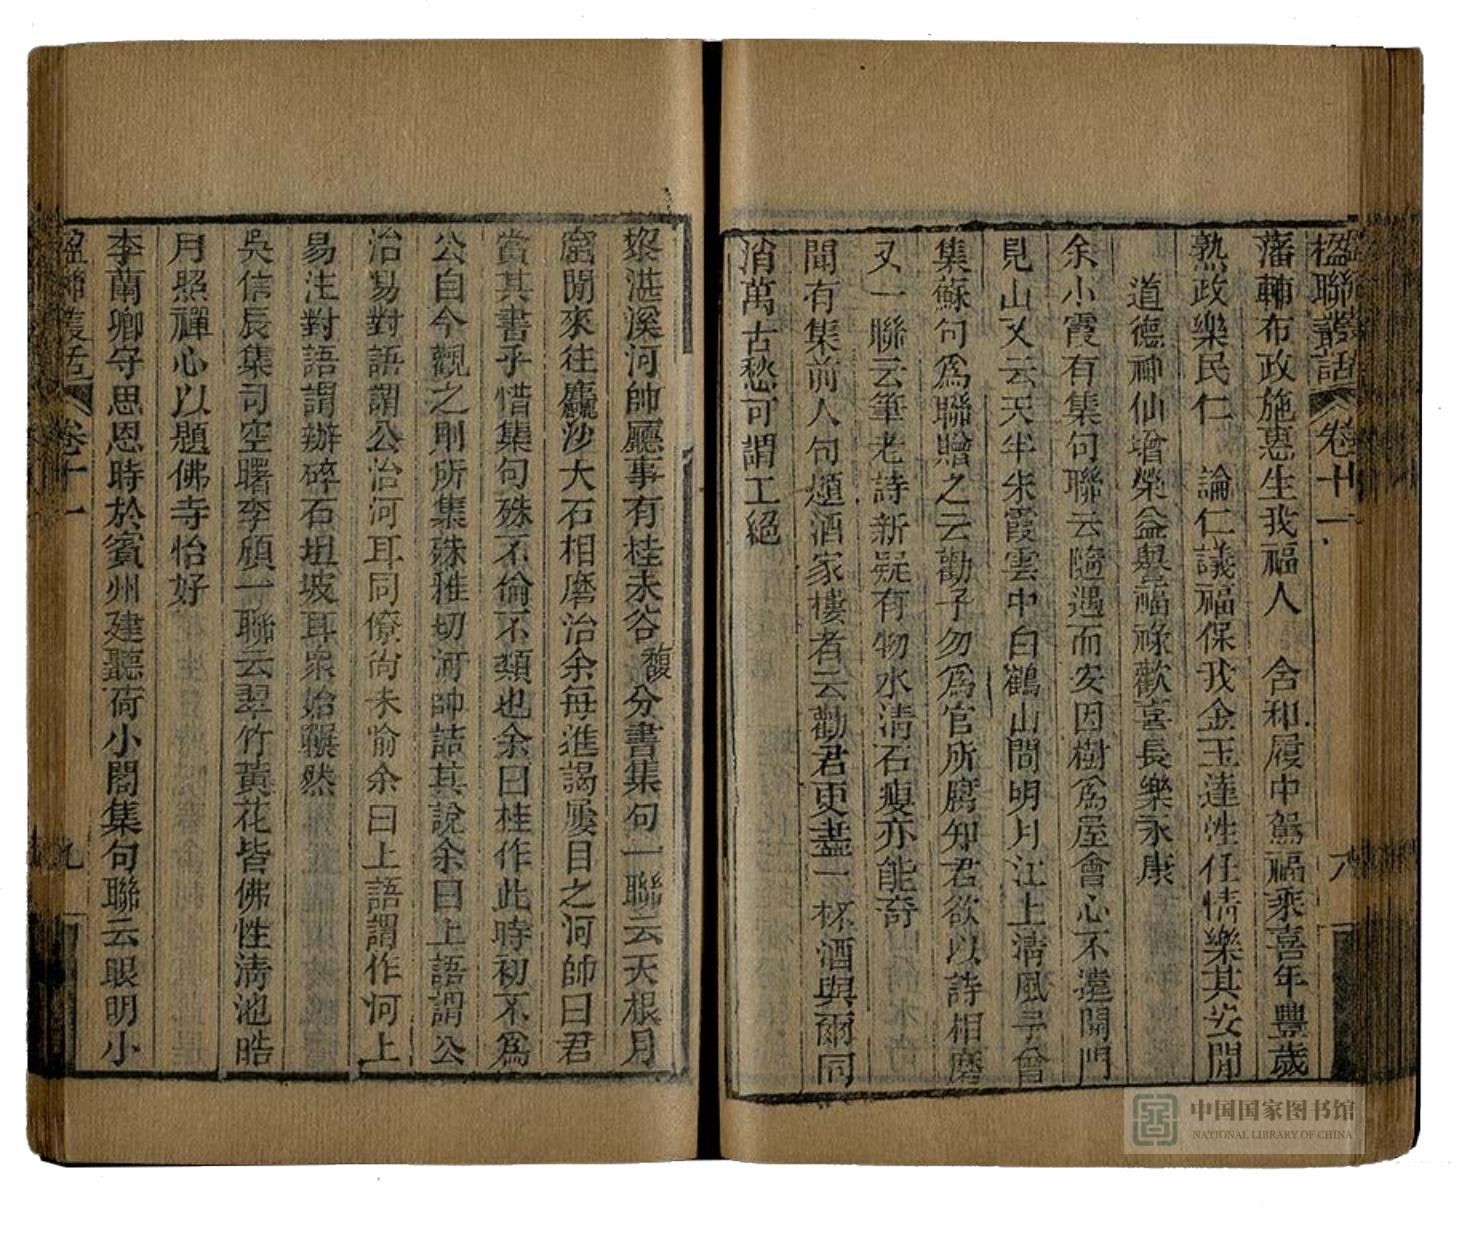 楹聯叢話 卷十一 八
藩輔布政施惠生我福人 舍和履中駕福乘喜年豐歲
熟政樂民仁 論仁議福保我金玉蓬性任情樂其安閒
道德神仙增榮益譽福祿歡喜長樂永康
余小霞有集句聯云隨遇而安因樹爲屋會心不遠開門
見山又云天半朱霞雲中白鶴山間明月江上清風予曾
集蘇句爲聯贈之云勸子勿爲官所腐知君欲以詩相磨
又一聯云筆老詩新疑有物水清石瘦亦能奇
聞有集前人句題酒家樓者云勸君更盡一杯酒與爾同
消萬古愁可謂工絕
黎湛溪河帥廳事有桂未谷馥分書集句一聯云天根月
窟閒來往麤沙大石相磨治余每進謁屢目之河帥曰君
賞其書乎惜集句殊不倫不類也余曰桂作此時初不爲
公自今觀之則所集殊雅切河帥詰其說余曰上語謂公
治易對語謂公治河耳同僚尚未喻余曰上語謂作河上
易注對語謂辦碎石坦坡耳衆始囅然
吳信辰集司空曙李頎一聯云翠竹黃花皆佛性清池皓
月照禪心以題佛寺恰好
李蘭卿守思恩時於賓州建聽荷小閣集句聯云眼明小
楹聯叢話 卷十一 九
中国国家图书馆
NATIONAL LIBRARY OF CHINA